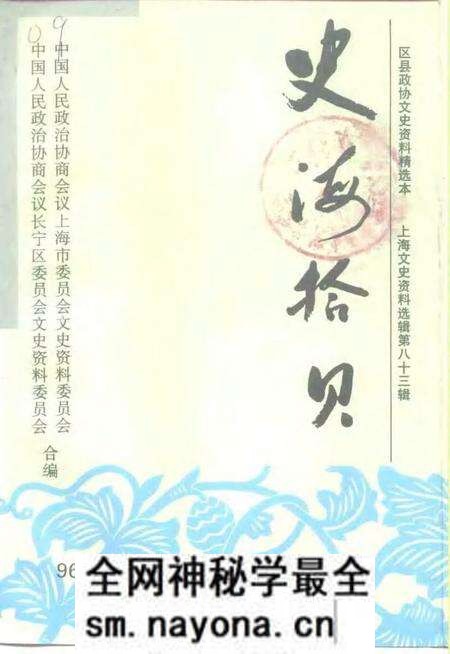 区县政协文史资料精选本 上海文史资料选辑第八十三辑
史海拾贝
中国人民政治协商会议上海市委员会文史资料委员会
中国人民政治协商会议长宁区委员会文史资料委员会
合编
96
全网神秘学最全
sm.nayona.cn